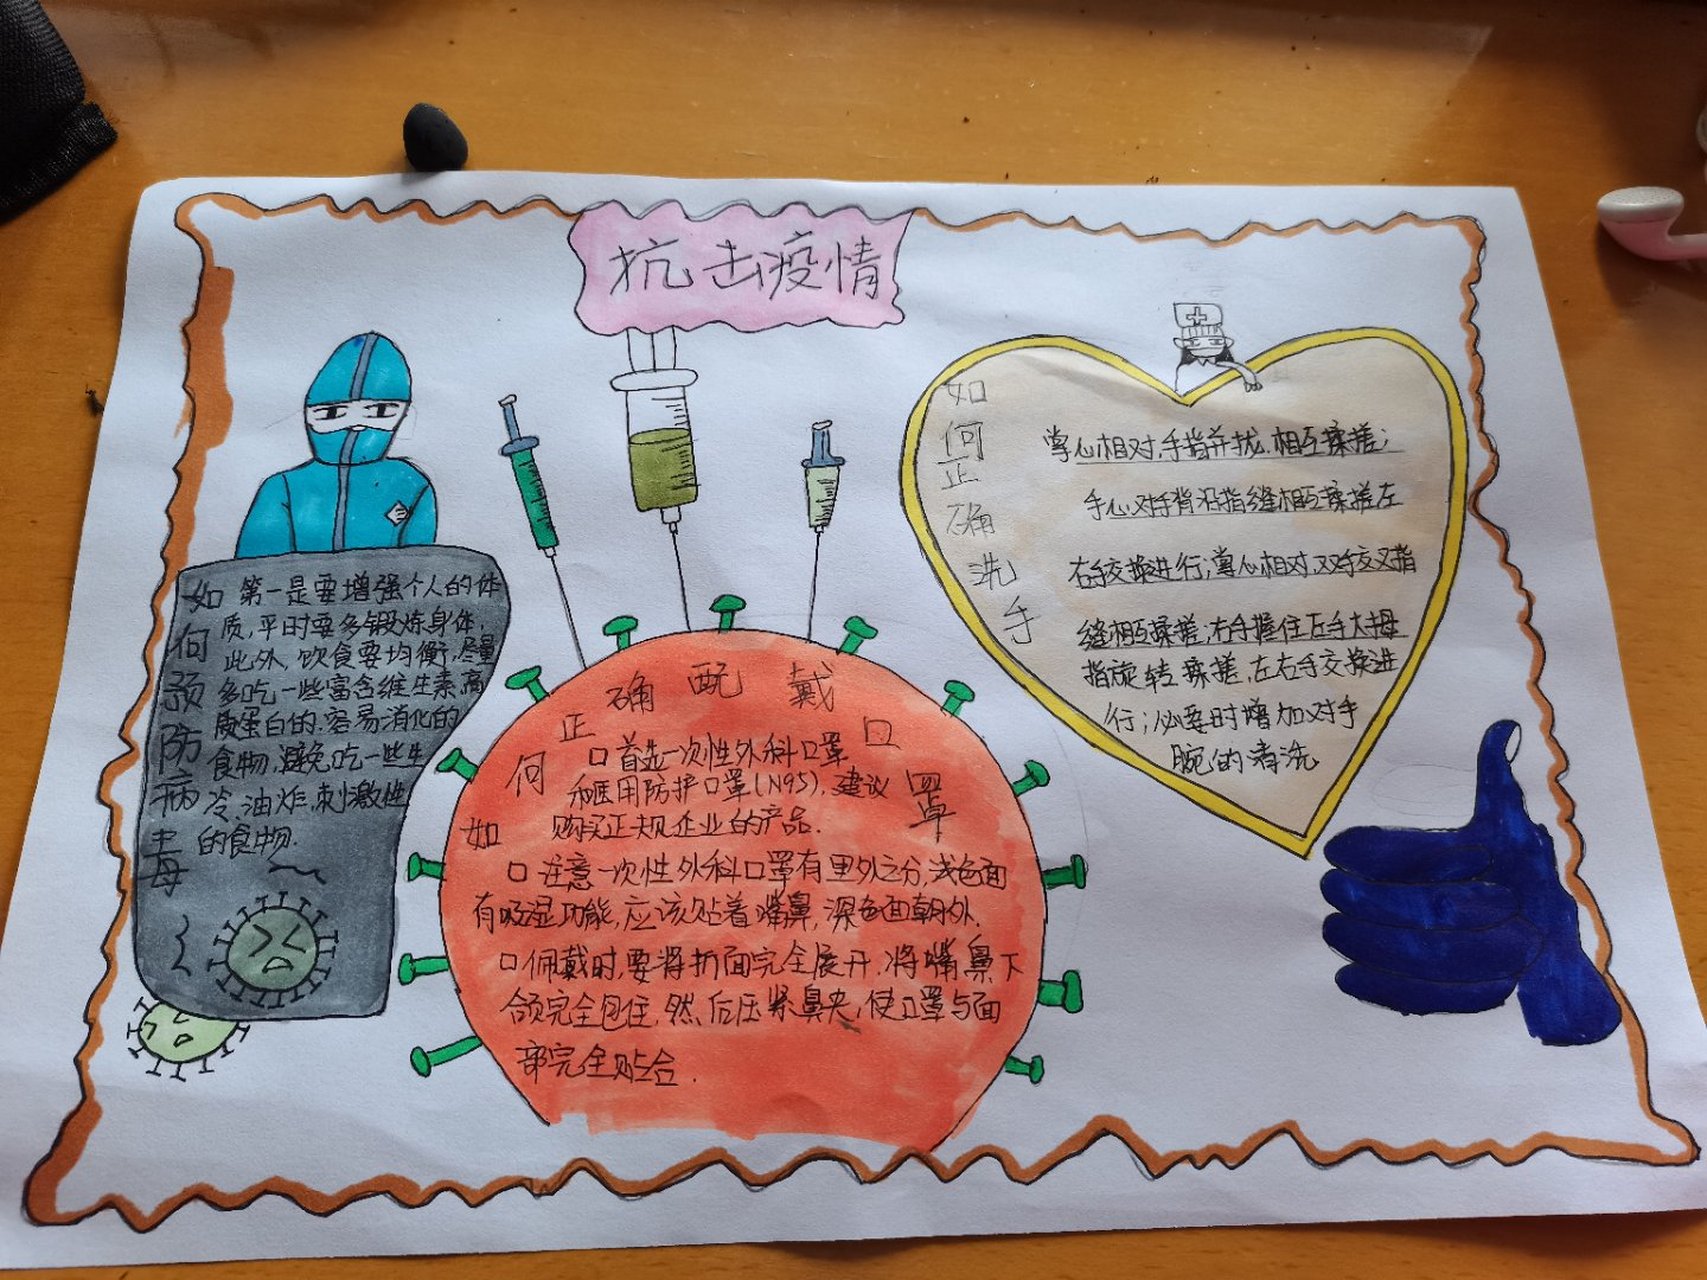 抗击疫情
如何预防病毒
第一是要增强个人的体
质,平时要多锻炼身体,
此外,饮食要均衡,尽量
多吃一些富含维生素,高
质蛋白的.容易消化的
食物,避免吃一些生
冷.油炸.刺激性
的食物.
如何正确配戴口罩
口首选一次性外科口罩
和医用防护口罩(N95),建议
购买正规企业的产品.
口注意一次性外科口罩有里外之分,浅色面
有吸湿功能,应该贴着嘴鼻,深色面朝外.
口佩戴时,要将折面完全展开.将嘴鼻下
颌完全包住,然后压紧鼻夹,使口罩与面
部完全贴合.
如何正确洗手
掌心相对,手指并拢.相互揉搓;
手心对手背沿指缝相互揉搓左
右手交换进行;掌心相对,双手交叉指
缝相互揉搓,右手握住左手大拇
指旋转揉搓,左右手交换进
行;必要时增加对手
腕的清洗